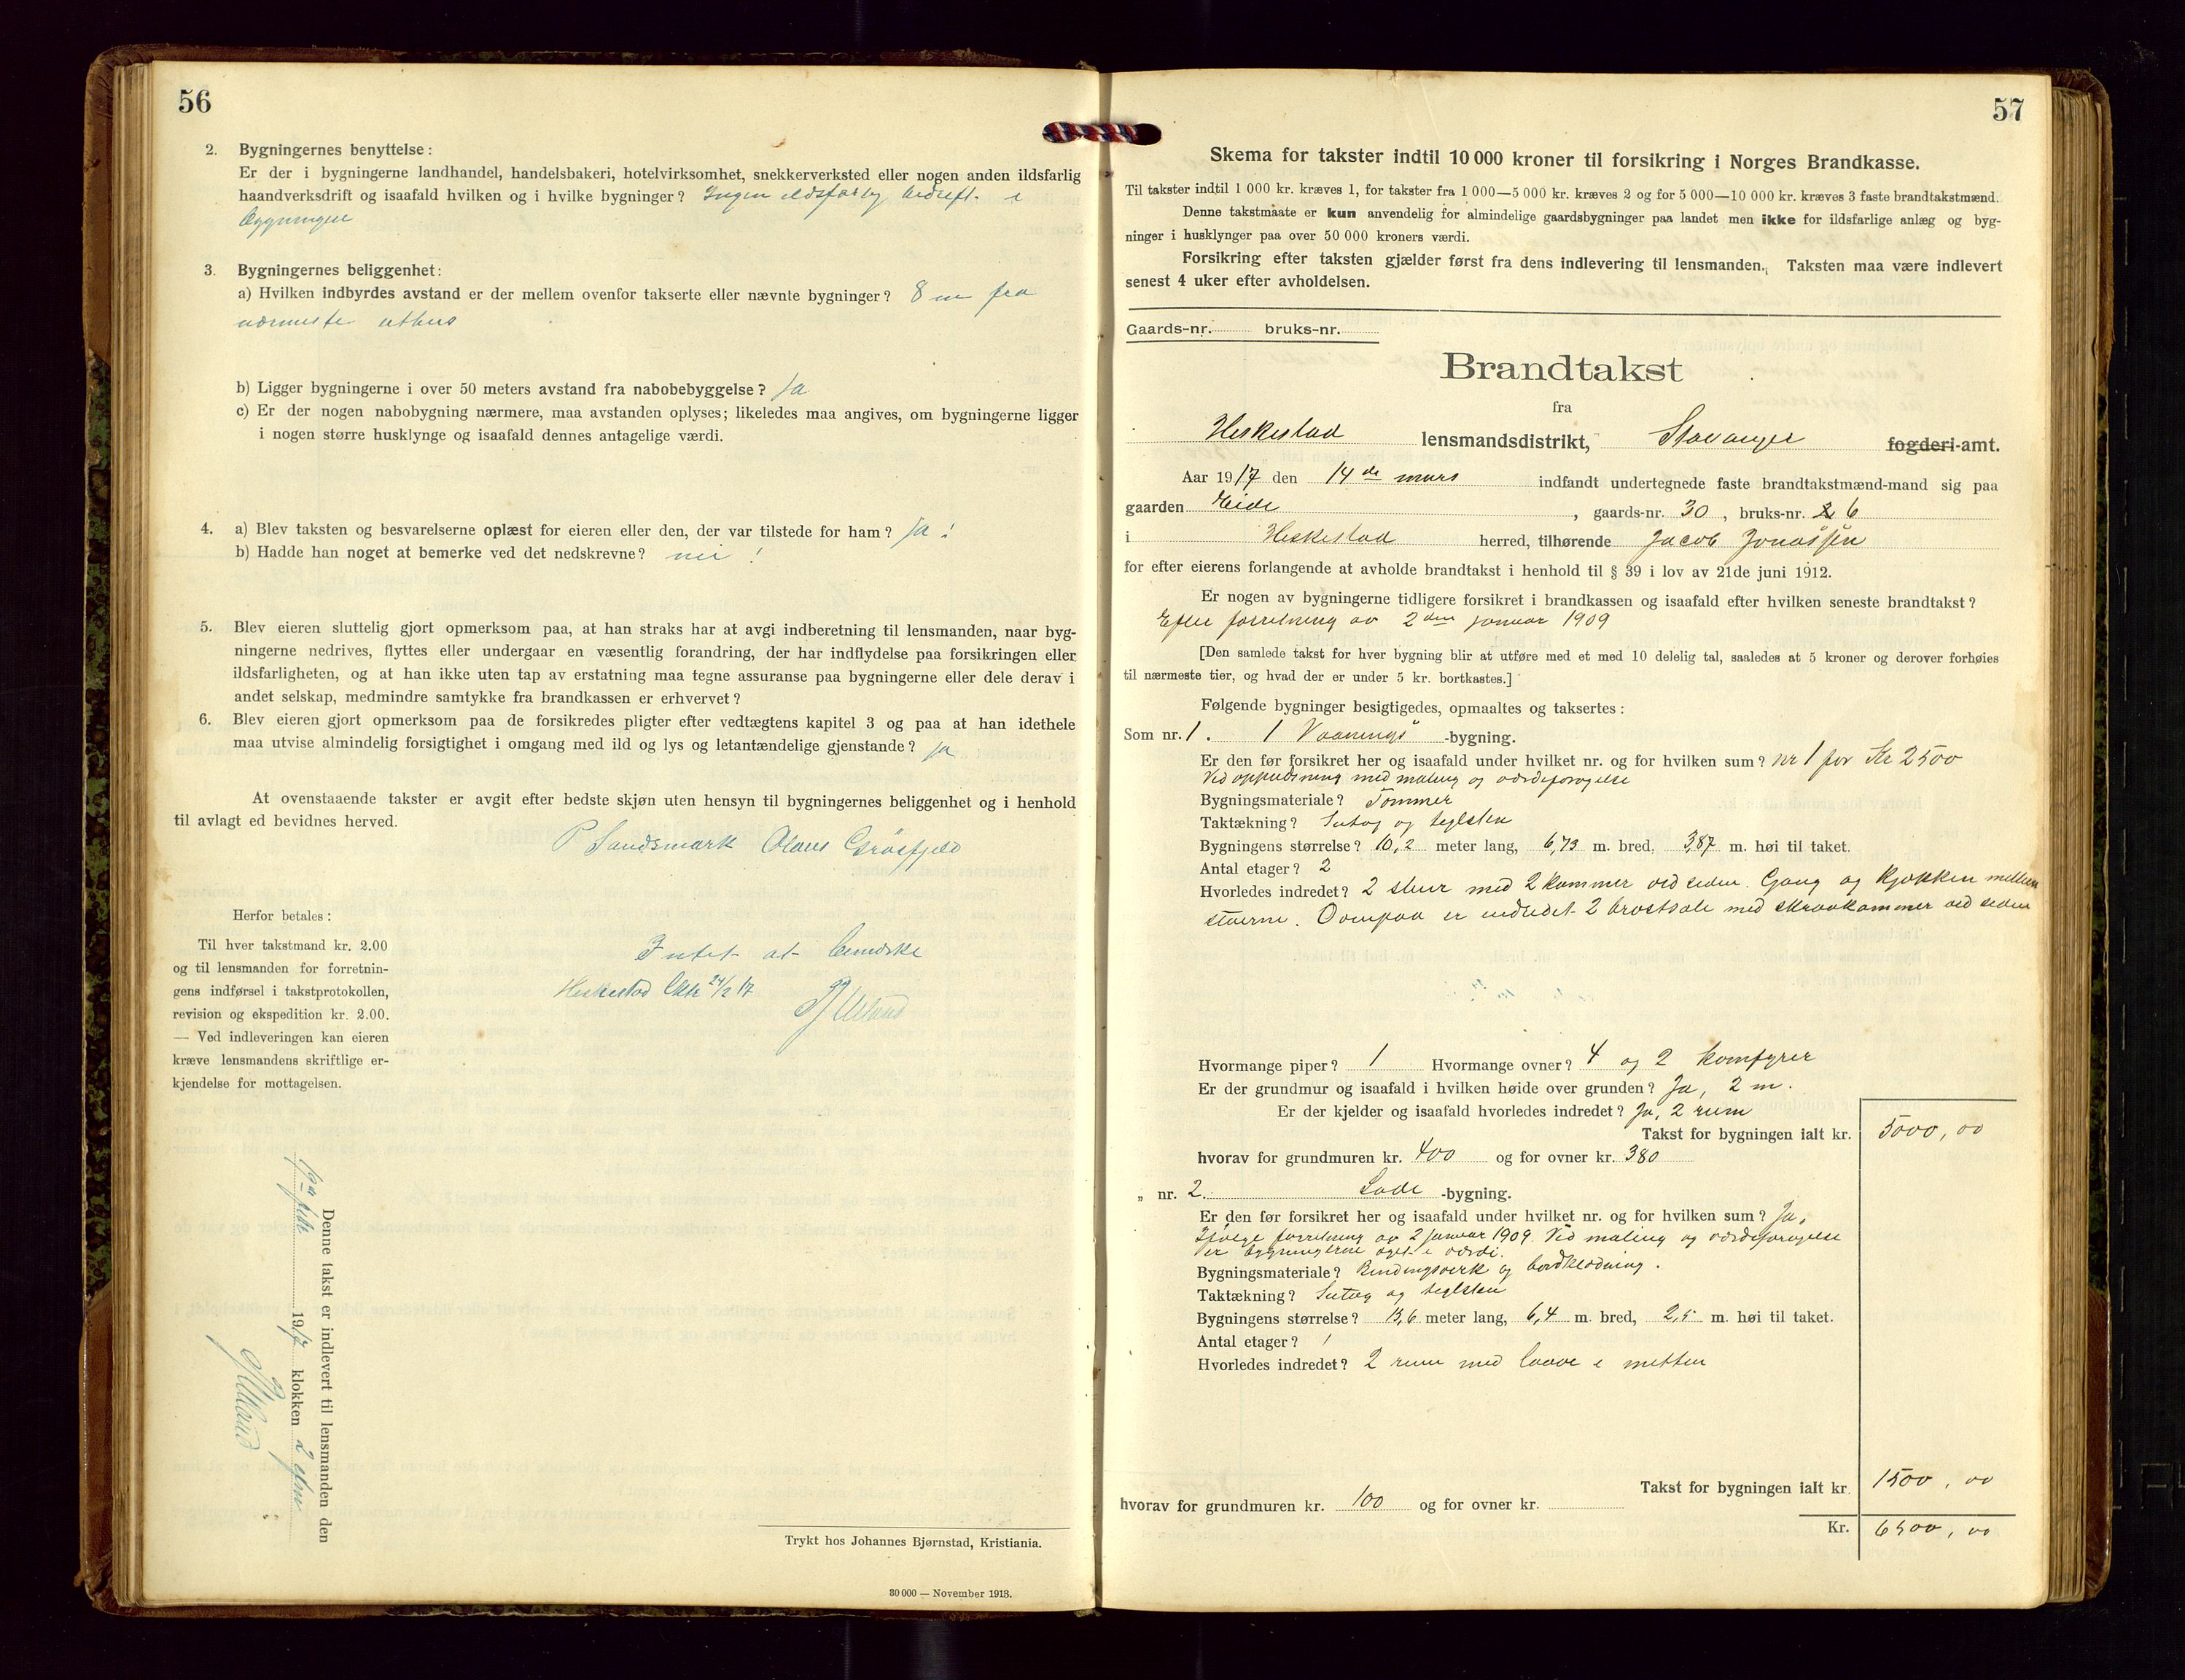 56
2. Bygningernes benyttelse:
Er der i bygningerne landhandel, handelsbakeri, hotelvirksomhet, snekkerverksted eller nogen anden ildsfarlig
haandverksdrift og isaafald hvilken og i hvilke bygninger? Ingen ildsfarlig bedrift i
bygningen
3. Bygningernes beliggenhet:
a) Hvilken indbyrdes avstand er der mellem ovenfor takserte eller nævnte bygninger? 8 m fra
nærmeste uthus
b) Ligger bygningerne i over 50 meters avstand fra nabobebyggelse? Ja
c) Er der nogen nabobygning nærmere, maa avstanden oplyses; likeledes maa angives, om bygningerne ligger
i nogen større husklynge og isaafald dennes antagelige værdi.
4. a) Blev taksten og besvarelserne oplæst for eieren eller den, der var tilstede for ham? Ja!
b) Hadde han noget at bemerke ved det nedskrevne? nei!
5. Blev eieren sluttelig gjort opmerksom paa, at han straks har at avgi indberetning til lensmanden, naar byg-
ningerne nedrives, flyttes eller undergaar en væsentlig forandring, der har indflydelse paa forsikringen eller
ildsfarligheten, og at han ikke uten tap av erstatning maa tegne assuranse paa bygningerne eller dele derav i
andet selskap, medmindre samtykke fra brandkassen er erhvervet?
6. Blev eieren gjort opmerksom paa de forsikredes pligter efter vedtægtens kapitel 3 og paa at han idethele
maa utvise almindelig forsigtighet i omgang med ild og lys og letantændelige gjenstande? ja
At ovenstaaende takster er avgit efter bedste skjøn uten hensyn til bygningernes beliggenhet og i henhold
til avlagt ed bevidnes herved.
P Sandsmark Olaus Gråsfjeld
Herfor betales:
Til hver takstmand kr. 2.00
og til lensmanden for forretnin-
gens indførsel i takstprotokollen,
revision og ekspedition kr. 2.00.
— Ved indleveringen kan eieren
kræve lensmandens skriftlige er-
kjendelse for mottagelsen.
Intet at bemærke
Heskestad
Denne takst er indlevert til lensmanden den
1917 klokken 2
Trykt hos Johannes Bjørnstad, Kristiania.
30 000 — November 1913.
57
Skema for takster indtil 10 000 kroner til forsikring i Norges Brandkasse.
Til takster indtil 1 000 kr. kræves 1, for takster fra 1 000—5 000 kr. kræves 2 og for 5 000—10 000 kr. kræves 3 faste brandtakstmænd.
Denne takstmaate er kun anvendelig for almindelige gaardsbygninger paa landet men ikke for ildsfarlige anlæg og byg-
ninger i husklynger paa over 50 000 kroners værdi.
Forsikring efter taksten gjælder først fra dens indlevering til lensmanden. Taksten maa være indlevert
senest 4 uker efter avholdelsen.
Gaards-nr. bruks-nr.
Brandtakst
fra
Heskestad lensmandsdistrikt, Stavanger fogderi-amt.
Aar 1917 den 14de mars indfandt undertegnede faste brandtakstmænd-mand sig paa
gaarden Eide, gaards-nr. 30, bruks-nr. 6
i Heskestad herred, tilhørende Jacob Jonassen
for efter eierens forlangende at avholde brandtakst i henhold til § 39 i lov av 21de juni 1912.
Er nogen av bygningerne tidligere forsikret i brandkassen og isaafald efter hvilken seneste brandtakst?
Efter forretning av 2den januar 1909
[Den samlede takst for hver bygning blir at utføre med et med 10 delelig tal, saaledes at 5 kroner og derover forhøies
til nærmeste tier, og hvad der er under 5 kr. bortkastes.]
Følgende bygninger besigtigedes, opmaaltes og taksertes:
Som nr. 1. 1 Vaanings-bygning.
Er den før forsikret her og isaafald under hvilket nr. og for hvilken sum? nr 1 for Kr 2500
Ved oppudsning med maling og værdiforøgelse
Bygningsmateriale? Tømmer
Taktækning? Sutag og teglsten
Bygningens størrelse? 10,2 meter lang, 6,73 m. bred, 3,87 m. høi til taket.
Antal etager? 2
Hvorledes indredet? 2 stuer med 2 kammer ved siden. Gang og kjøkken mellem
stuerne. Ovenpaa er indredet 2 brostsale med skraakammer ved siden
Hvormange piper? 1 Hvormange ovner? 4 og 2 komfyrer
Er der grundmur og isaafald i hvilken høide over grunden? Ja, 2 m.
Er der kjelder og isaafald hvorledes indredet? Ja, 2 rum
Takst for bygningen ialt kr. 5000,00
hvorav for grundmuren kr. 400 og for ovner kr. 380
„ nr. 2. Lade-bygning.
Er den før forsikret her og isaafald under hvilket nr. og for hvilken sum? Ja,
Ifølge forretning av 2 januar 1909. Ved maling og værdiforøgelse
er bygningerne øget i værdi.
Bygningsmateriale? Bindingsverk og bordklædning.
Taktækning? Sutag og teglsten
Bygningens størrelse? 13,6 meter lang, 6,4 m. bred, 2,5 m. høi til taket.
Antal etager? 1
Hvorledes indredet? 2 rum med laave i mitten
Takst for bygningen ialt kr. 1500,00
hvorav for grundmuren kr. 100 og for ovner kr.
Kr. 6500,00